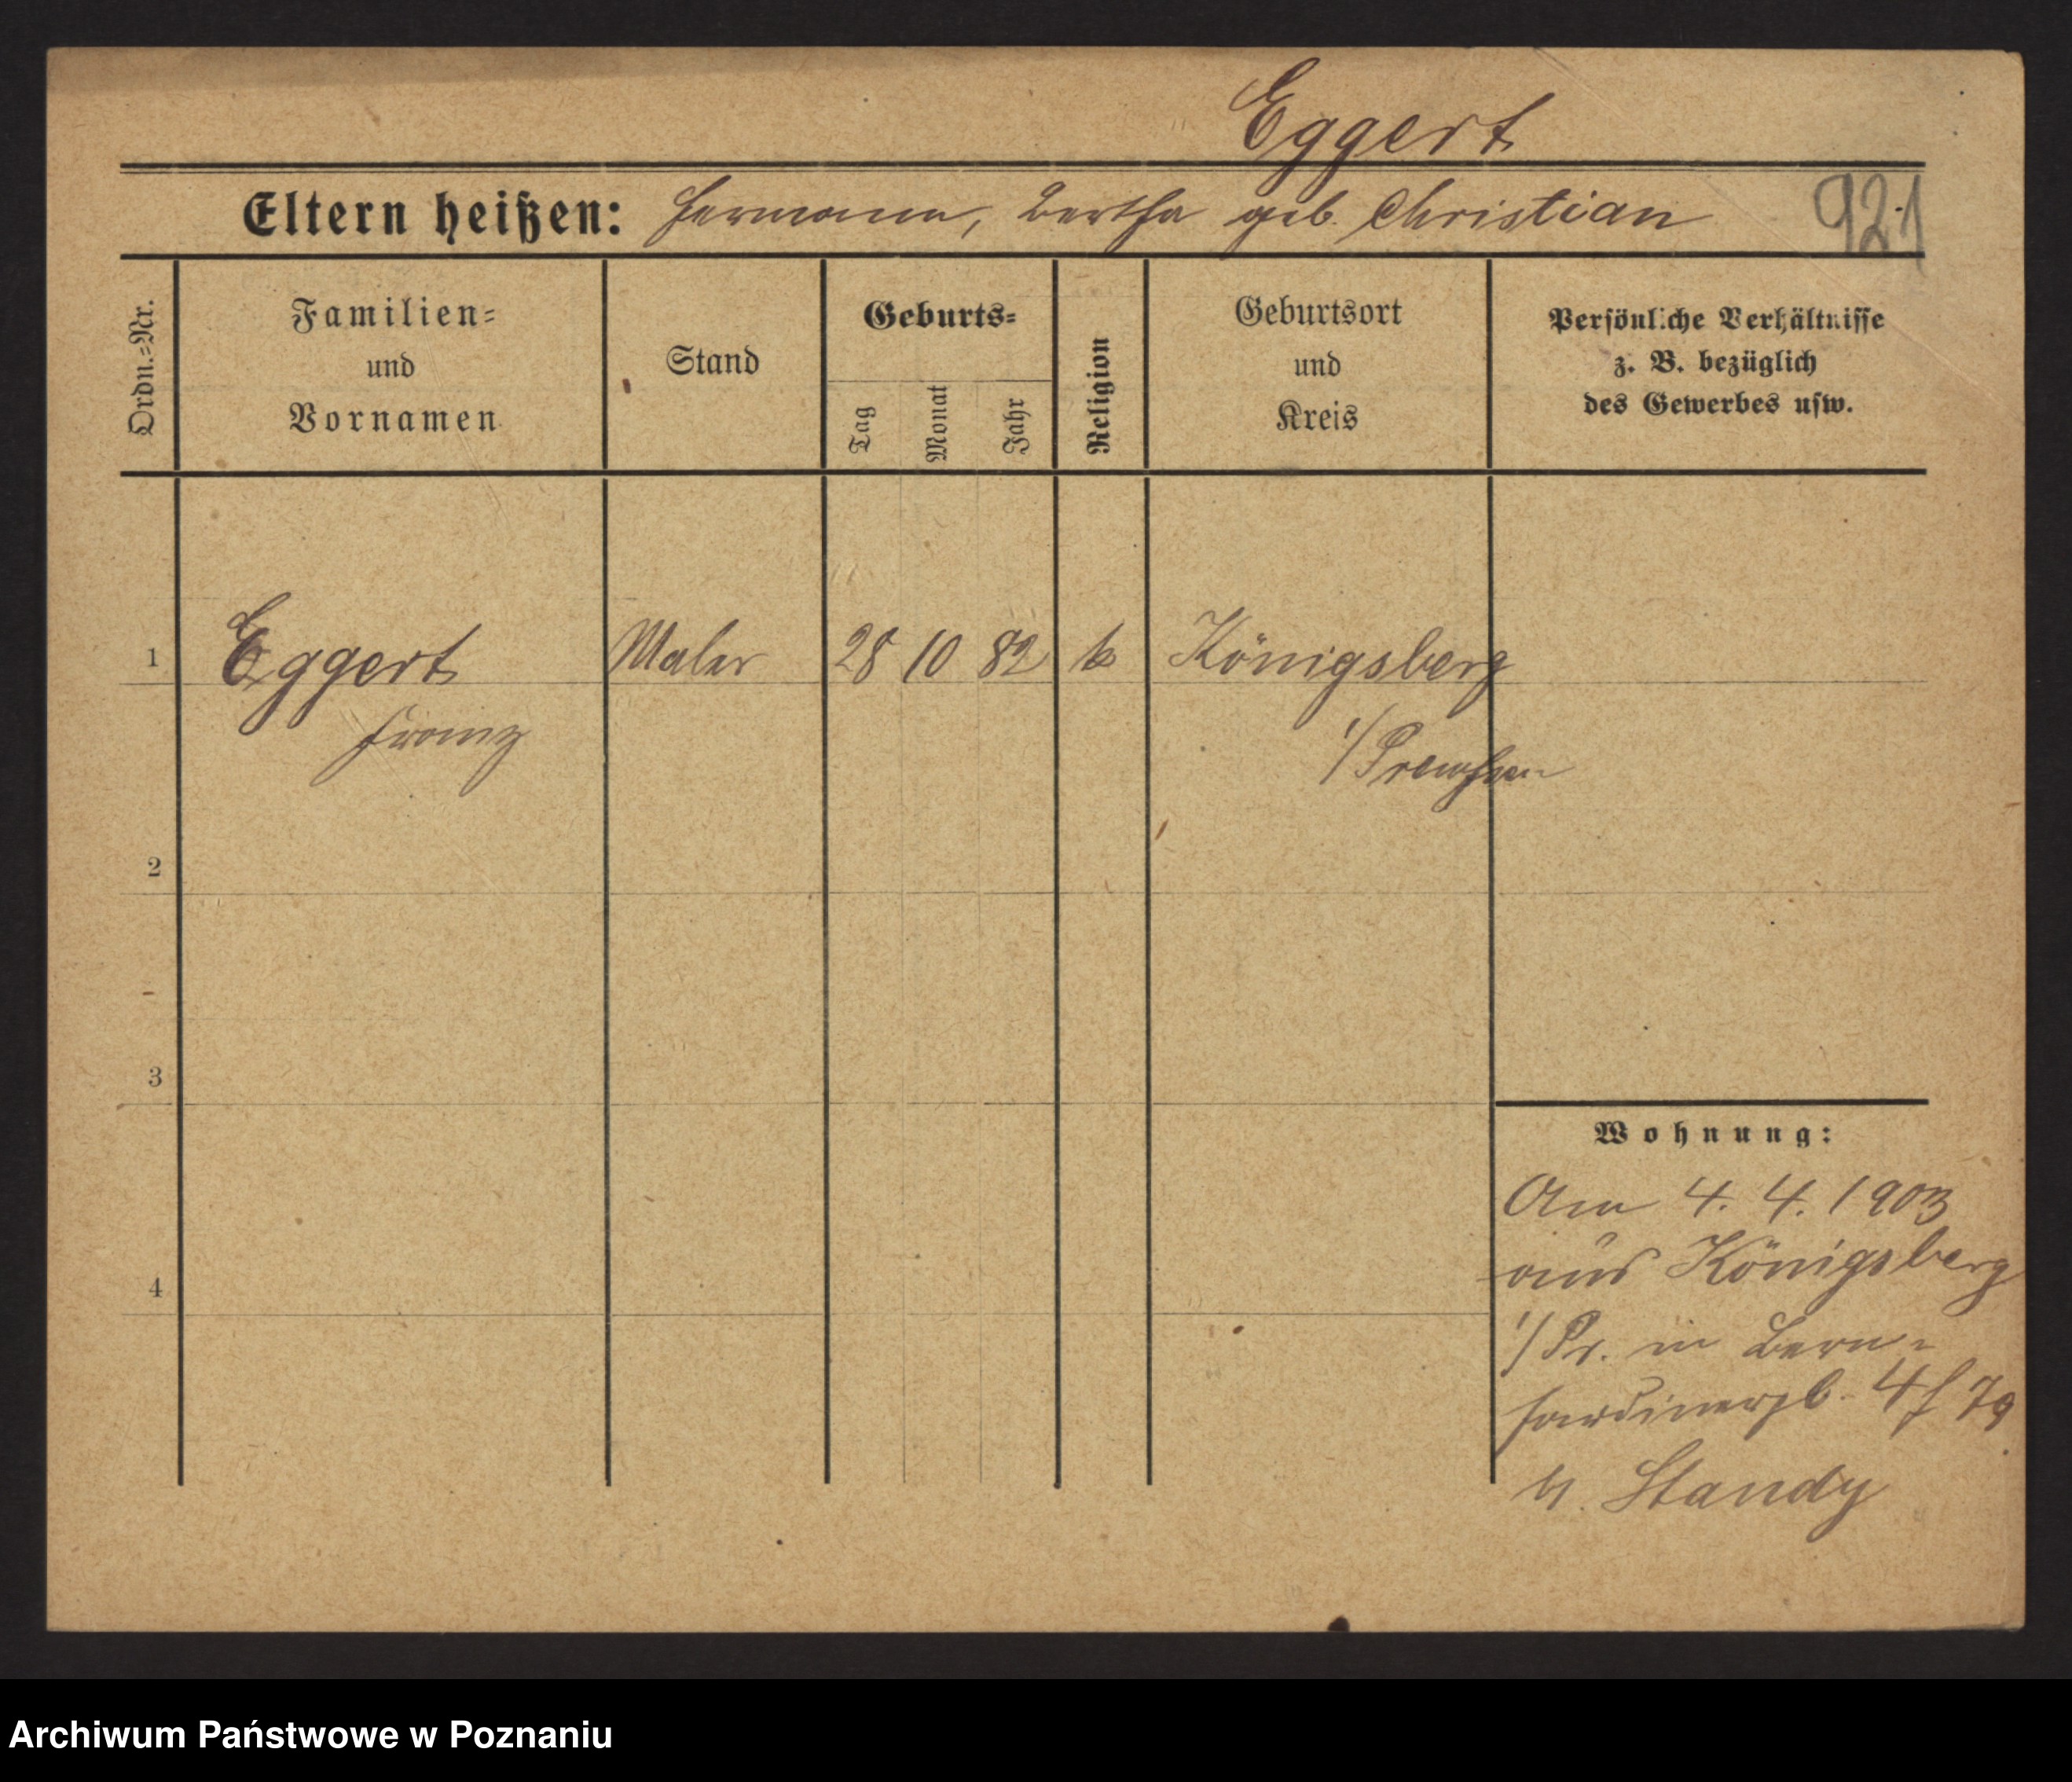 Eggert
Eltern heißen: Hermann, Bertha geb. Christian 921
Ordn.=Nr.
Familien=
und
Vornamen
Stand
Geburts=
Tag
Monat
Jahr
Religion
Geburtsort
und
Kreis
Persönliche Verhältnisse
z. B. bezüglich
des Gewerbes usw.
1 Eggert Maler 28 10 82 k Königsberg
Franz
i/Preußen
2
3
4
Wohnung:
Am 4. 4. 1903
aus Königsberg
i/Pr. in Bern=
hardinerpl. 4
b. Standy
Archiwum Państwowe w Poznaniu